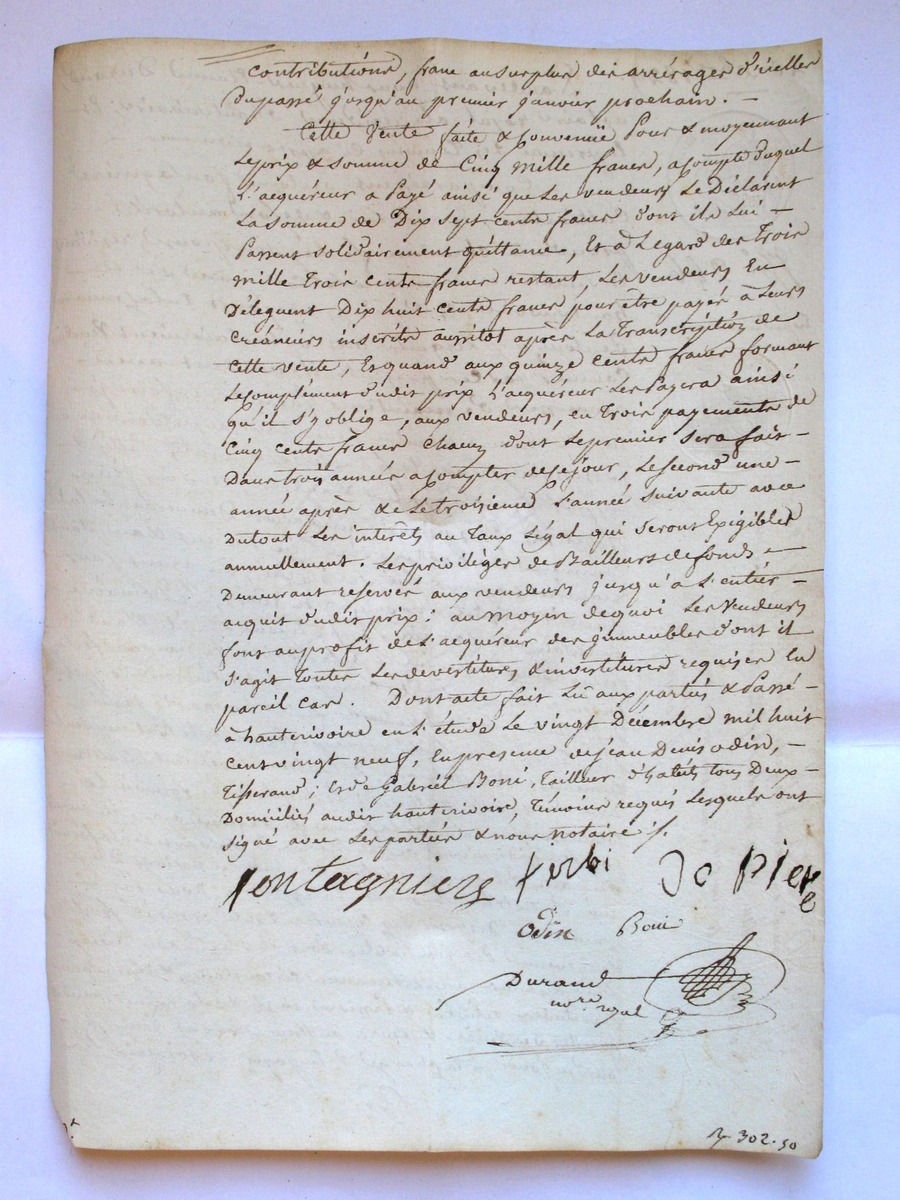 contributions, franc au surplus des arrérages d'icelles
du passé jusqu'au premier janvier prochain. —
Cette vente faite & convenüe pour & moyennant
le prix & somme de Cinq mille francs, a compte duquel
l'acquéreur a payé ainsi que les vendeurs le déclarent
la somme de Dix sept cents francs dont ils lui —
passent solidairement quittance, et à l'egard des trois
mille trois cents francs restant, les vendeurs en
délèguent Dix huit cents francs pour être payés à leurs
créanciers inscrits aussitot après la transcription de
cette vente, et quand aux quinze cents francs formant
le complément dudit prix l'acquéreur les payera ainsi
qu'il s'y oblige, aux vendeurs, en trois payements de
cinq cents francs chacun dont le premier sera fait —
dans trois années a compter de ce jour, le second une —
année après & le troisieme l'année suivante avec
du tout les intérêts au taux légal qui seront exigibles
annuellement. Les privilèges de Bailleurs de fonds —
demeurant reservés aux vendeurs jusqu'à l'entier —
acquit dudit prix : au moyen de quoi les vendeurs
font au profit de l'acquéreur des immeubles dont il
s'agit toutes les devestitures & investitures requises en
pareil cas. Dont acte fait lû aux parties & passé —
à hauterivoire en l'étude le vingt Décembre mil huit
cent vingt neuf, en presence de jean Denis odin, —
tisserand, et de Gabriel Boni, tailleur d'habits tous deux —
domiciliés audit hauterivoire, témoins requis lesquels ont
signé avec les parties & nous notaire ./.
Montagniers jo piere
odin Boni
Durand
nore royal
302.50